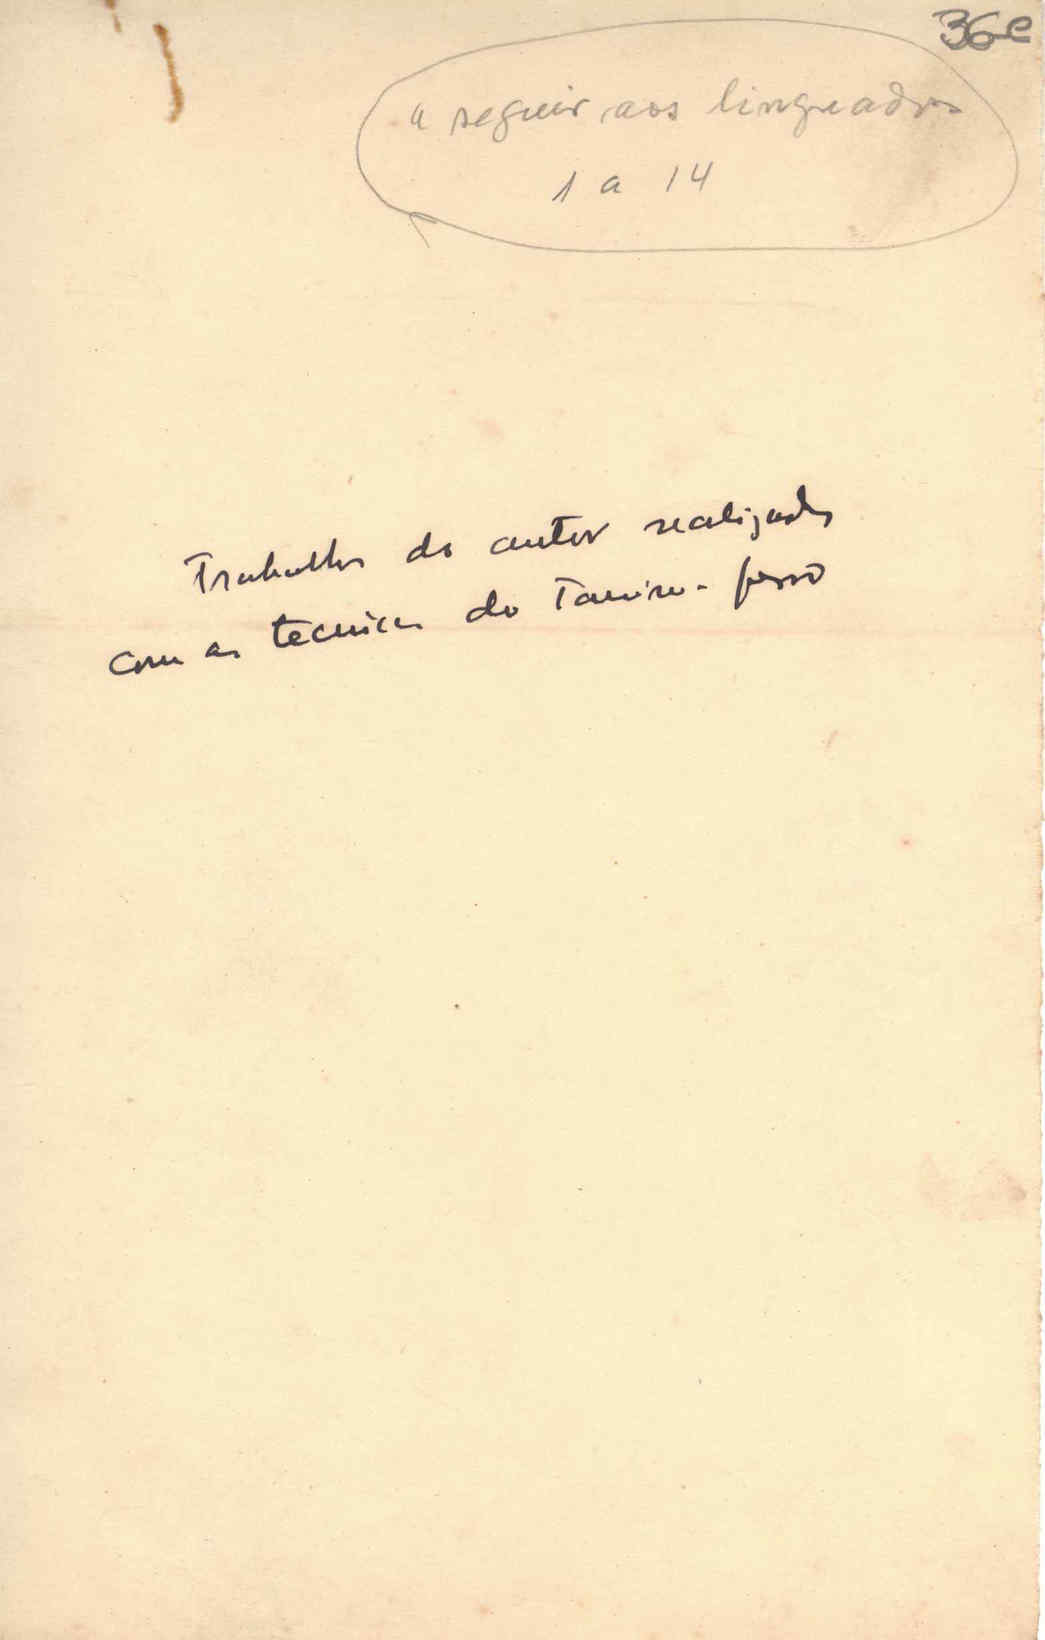 36c
a seguir aos linguados
1 a 14
Trabalhos do autor realizados
com as tecnicas do Tanino-ferro